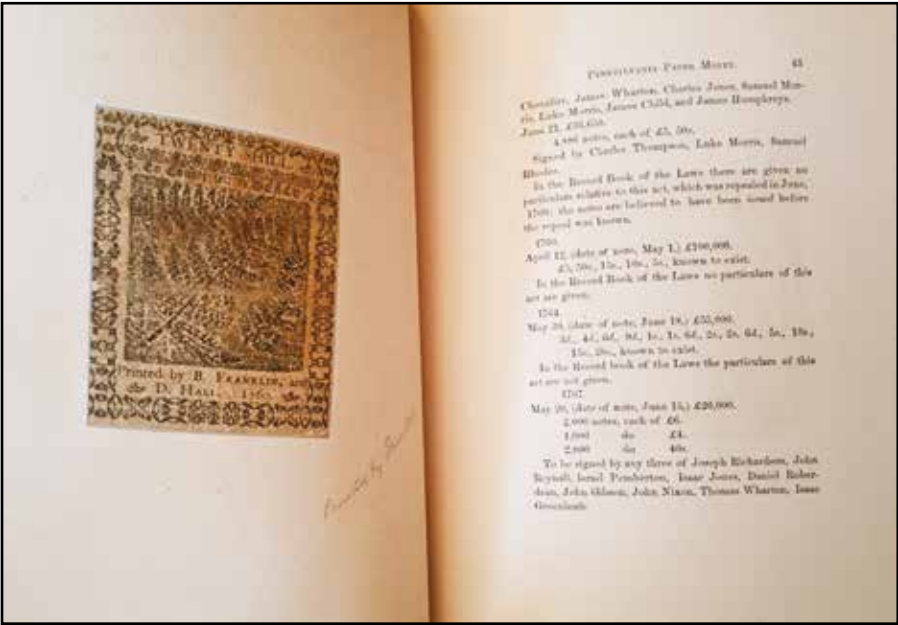 TWENTY SHILL
Printed by B. FRANKLIN, and
D. HALL. 1760.
Printed by
PENNSYLVANIA PAPER MONEY. 43
Chevalier, James Wharton, Charles Jones, Samuel Mor-
ris, Luke Morris, James Child, and James Humphreys.
June 21,
notes, each of £5, 50s.
Signed by Charles Thompson, Luke Morris, Samuel
Rhodes.
In the Record Book of the Laws there are given no
particulars relative to this act, which was repealed in June,
the notes are believed to have been issued before
the repeal was known.
1760.
April 12, (date of note, May 1,) £100,000.
£5, 50s., 15s., 10s., 5s., known to exist.
In the Record Book of the Laws no particulars of this
act are given.
1764.
May 30, (date of note, June 18,) £55,000.
3d., 4d., 6d., 9d., 1s., 1s. 6d., 2s., 2s. 6d., 5s., 10s.,
15s., 20s., known to exist.
In the Record book of the Laws the particulars of this
act are not given.
1767.
May 20, (date of note, June 15,) £20,000.
2,000 notes, each of £6.
1,000 do £4.
2,000 do 40s.
To be signed by any three of Joseph Richardson, John
Reynell, Israel Pemberton, Isaac Jones, Daniel Rober-
deau, John Gibson, John Nixon, Thomas Wharton, Isaac
Greenleafe